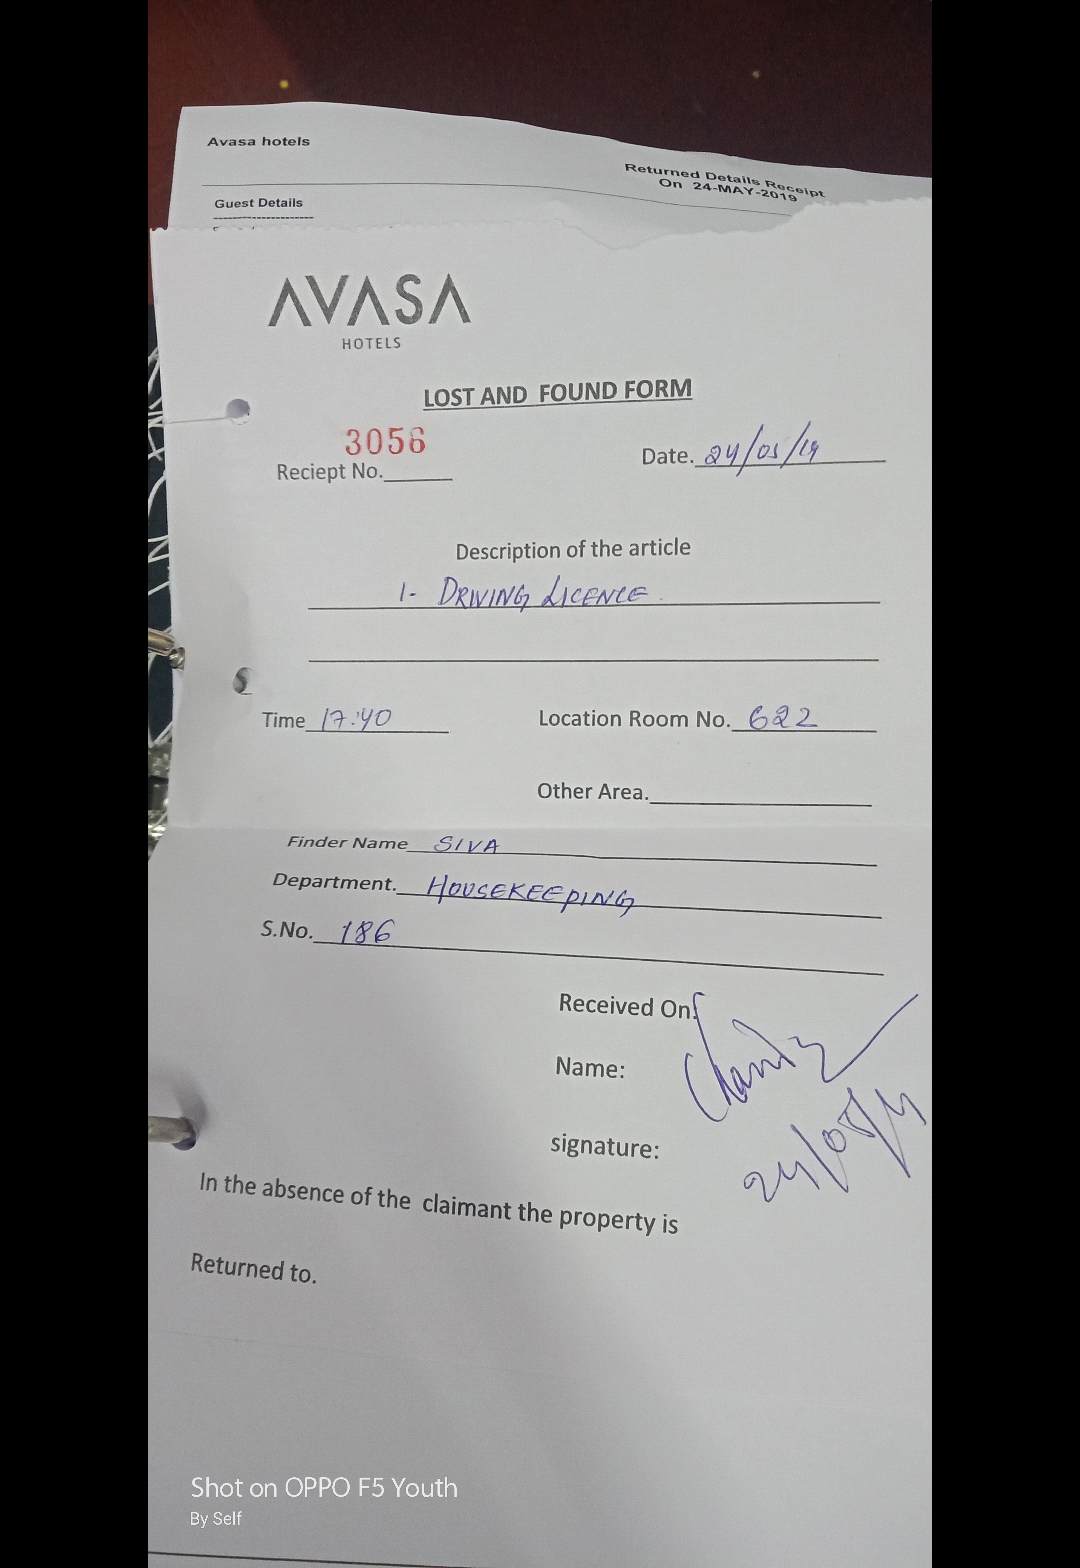 Avasa hotels
Returned Details Receipt
On 24-MAY-2019
Guest Details
AVASA
HOTELS
LOST AND FOUND FORM
3056
Reciept No.
Date. 24/05/19
Description of the article
1- DRIVING LICENCE
Time 17:40
Location Room No. 622
Other Area.
Finder Name SIVA
Department. HOUSEKEEPING
S.No. 186
Received On:
Name:
signature:
24/05/19
In the absence of the claimant the property is
Returned to.
Shot on OPPO F5 Youth
By Self